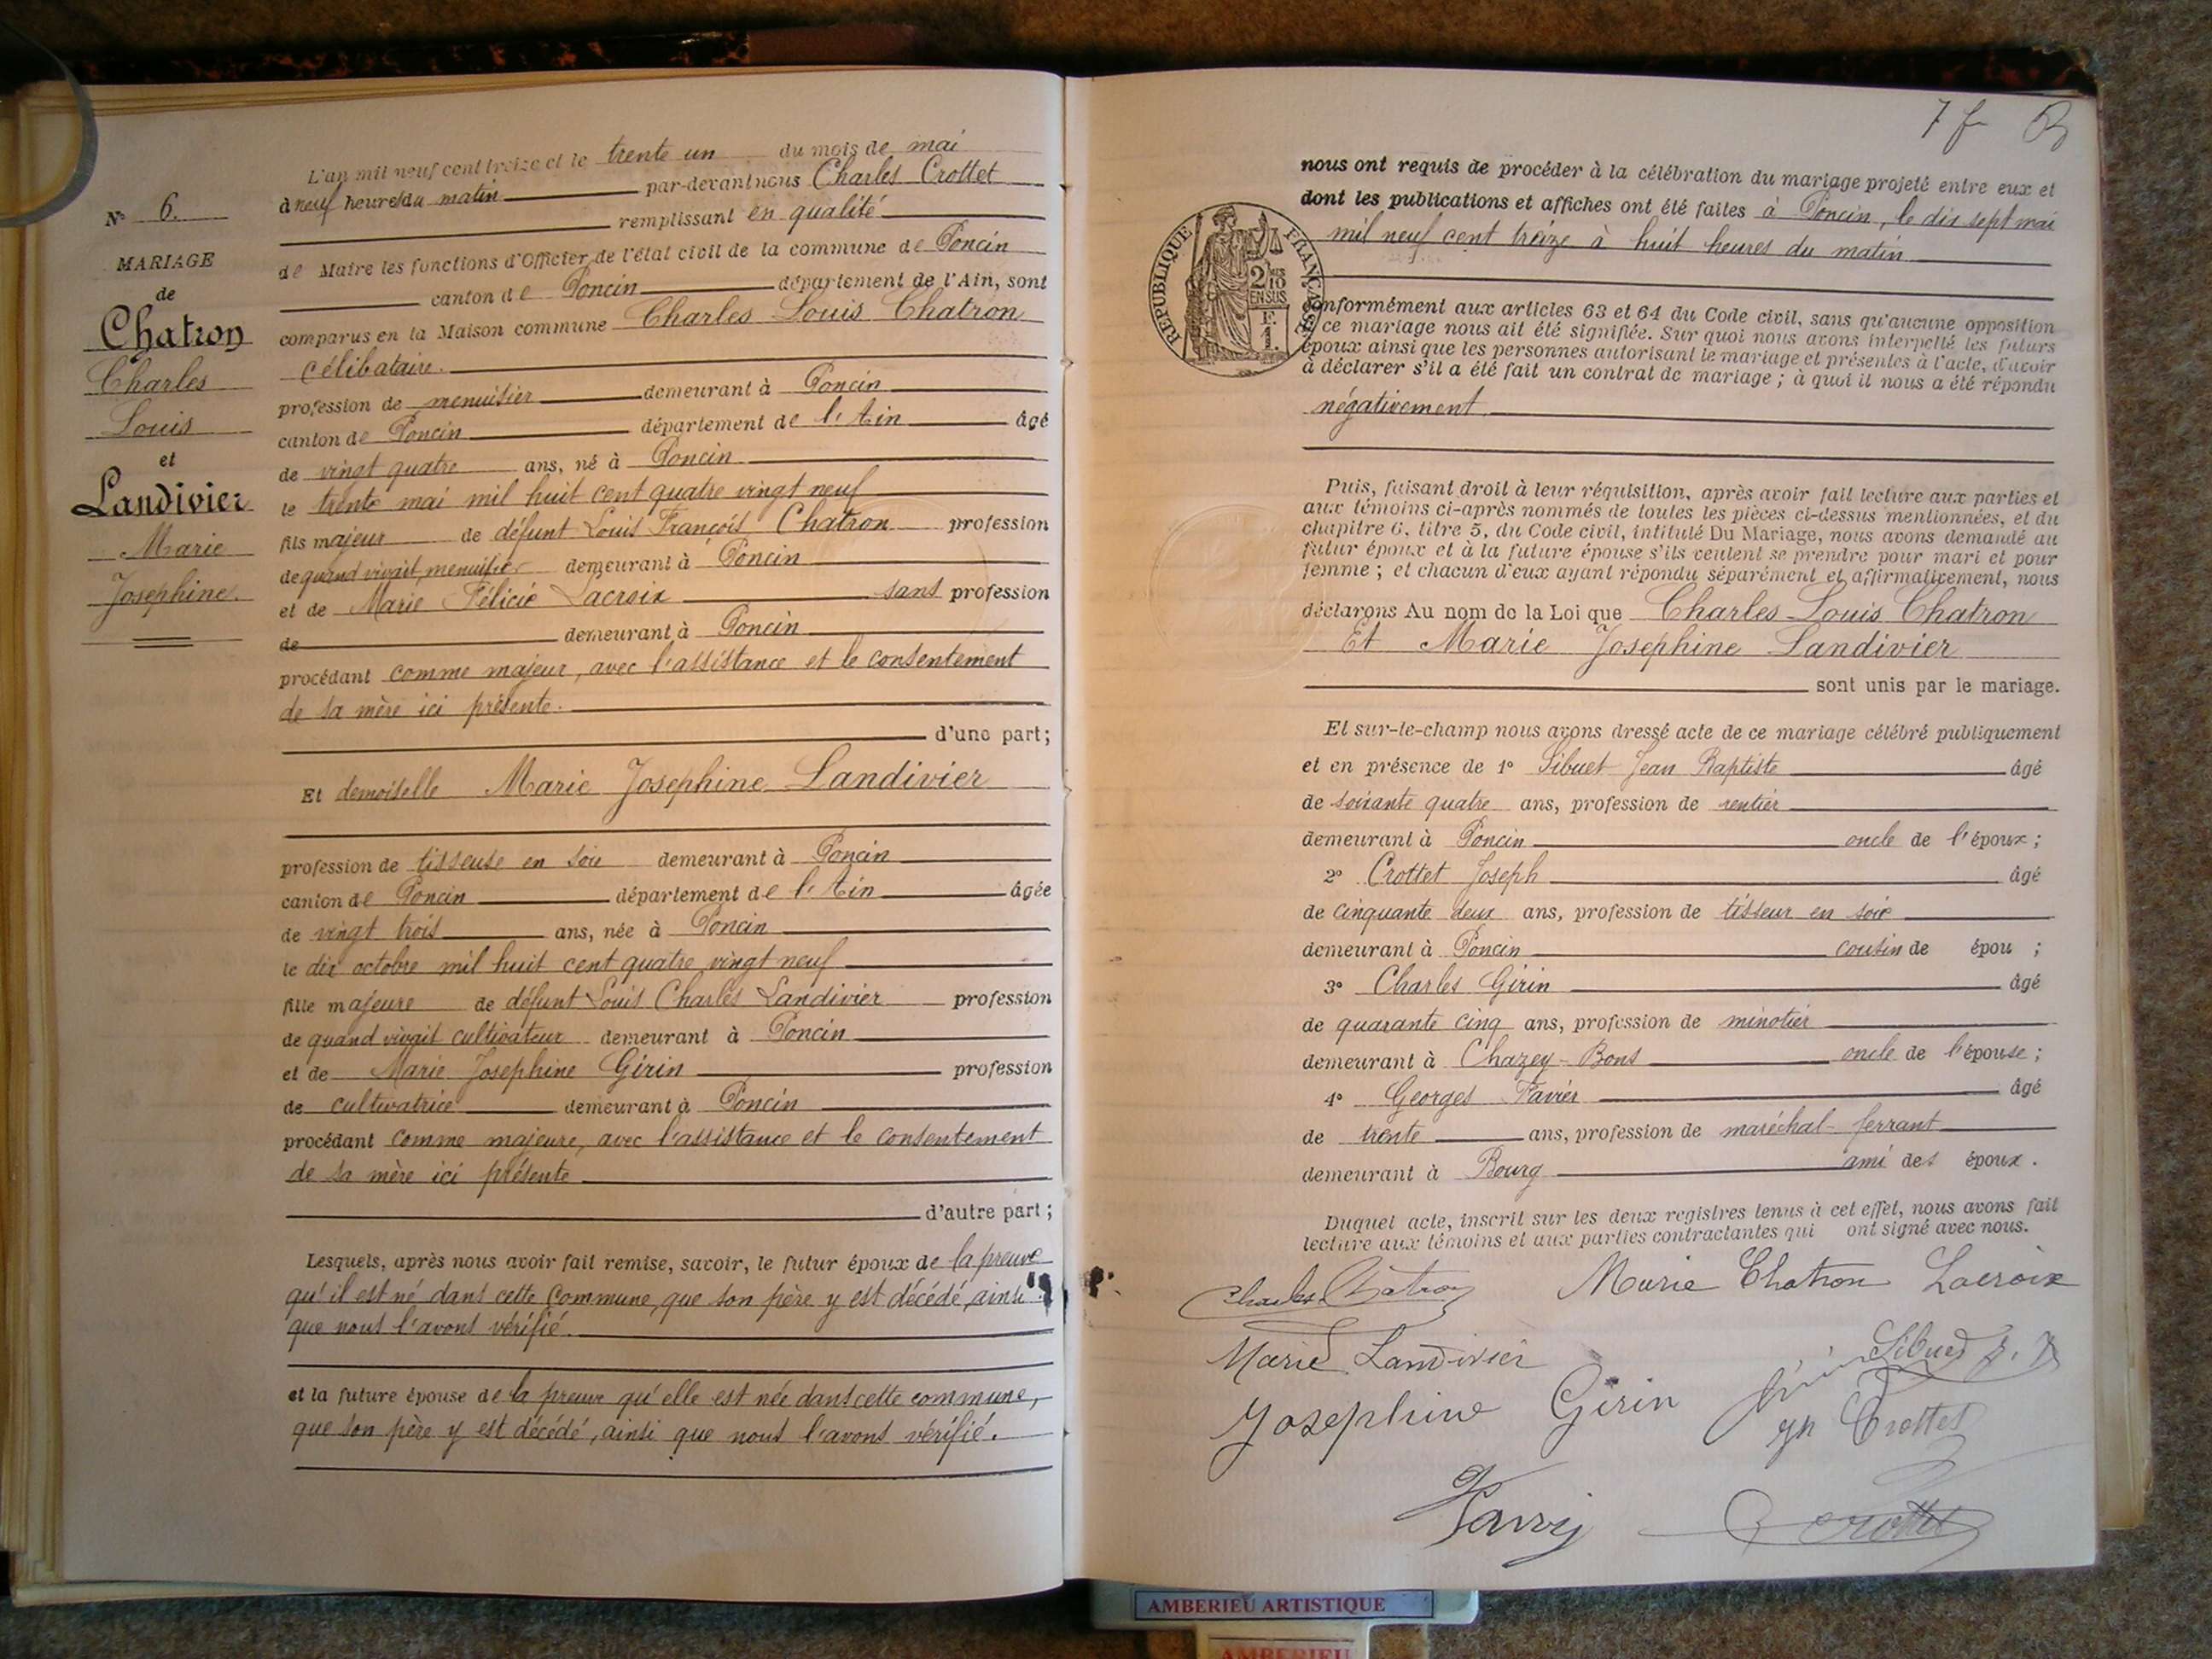 N° 6.
MARIAGE
de
Chatron
Charles
Louis
et
Landivier
Marie
Josephine.
L'an mil neuf cent treize et le trente un du mois de mai
à neuf heures du matin par-devant nous Charles Crottet
remplissant en qualité
de Maire les fonctions d'Officier de l'état civil de la commune de Poncin
canton de Poncin département de l'Ain, sont
comparus en la Maison commune Charles Louis Chatron
célibataire.
profession de menuisier demeurant à Poncin
canton de Poncin département de l'Ain âgé
de vingt quatre ans, né à Poncin
le trente mai mil huit cent quatre vingt neuf
fils majeur de défunt Louis François Chatron profession
de quand vivait menuisier demeurant à Poncin
et de Marie Félicie Lacroix sans profession
de demeurant à Poncin
procédant comme majeur, avec l'assistance et le consentement
de sa mère ici présente.
d'une part;
Et demoiselle Marie Josephine Landivier
profession de tisseuse en soie demeurant à Poncin
canton de Poncin département de l'Ain âgée
de vingt trois ans, née à Poncin
le dix octobre mil huit cent quatre vingt neuf
fille majeure de défunt Louis Charles Landivier profession
de quand vivait cultivateur demeurant à Poncin
et de Marie Josephine Girin profession
de cultivatrice demeurant à Poncin
procédant comme majeure, avec l'assistance et le consentement
de sa mère ici présente
d'autre part;
Lesquels, après nous avoir fait remise, savoir, le futur époux de la preuve
qu'il est né dans cette commune, que son père y est décédé, ainsi
que nous l'avons vérifié.
et la future épouse de la preuve qu'elle est née dans cette commune,
que son père y est décédé, ainsi que nous l'avons vérifié.
7 f
nous ont requis de procéder à la célébration du mariage projeté entre eux et
dont les publications et affiches ont été faites à Poncin, le dix sept mai
mil neuf cent treize à huit heures du matin
RÉPUBLIQUE FRANÇAISE
2/10
EN SUS
F
1.
conformément aux articles 63 et 64 du Code civil, sans qu'aucune opposition
à ce mariage nous ait été signifiée. Sur quoi nous avons interpellé les futurs
époux ainsi que les personnes autorisant le mariage et présentes à l'acte, d'avoir
à déclarer s'il a été fait un contrat de mariage ; à quoi il nous a été répondu
négativement
Puis, faisant droit à leur réquisition, après avoir fait lecture aux parties et
aux témoins ci-après nommés de toutes les pièces ci-dessus mentionnées, et du
chapitre 6, titre 5, du Code civil, intitulé Du Mariage, nous avons demandé au
futur époux et à la future épouse s'ils veulent se prendre pour mari et pour
femme ; et chacun d'eux ayant répondu séparément et affirmativement, nous
déclarons Au nom de la Loi que Charles Louis Chatron
Et Marie Josephine Landivier
sont unis par le mariage.
Et sur-le-champ nous avons dressé acte de ce mariage célébré publiquement
et en présence de 1° Sibuet Jean Baptiste âgé
de soixante quatre ans, profession de rentier
demeurant à Poncin oncle de l'époux ;
2° Crottet Joseph âgé
de cinquante deux ans, profession de tisseur en soie
demeurant à Poncin cousin de épou ;
3° Charles Girin âgé
de quarante cinq ans, profession de minotier
demeurant à Chazey-Bons oncle de l'épouse ;
4° Georges Favier âgé
de trente ans, profession de maréchal-ferrant
demeurant à Bourg ami des époux.
Duquel acte, inscrit sur les deux registres tenus à cet effet, nous avons fait
lecture aux témoins et aux parties contractantes qui ont signé avec nous.
Charles Chatron Marie Chatron Lacroix
Marie Landivier Sibuet J. B
Josephine Girin Girin
Crottet
Crottet
AMBERIEU ARTISTIQUE
AMBERIEU